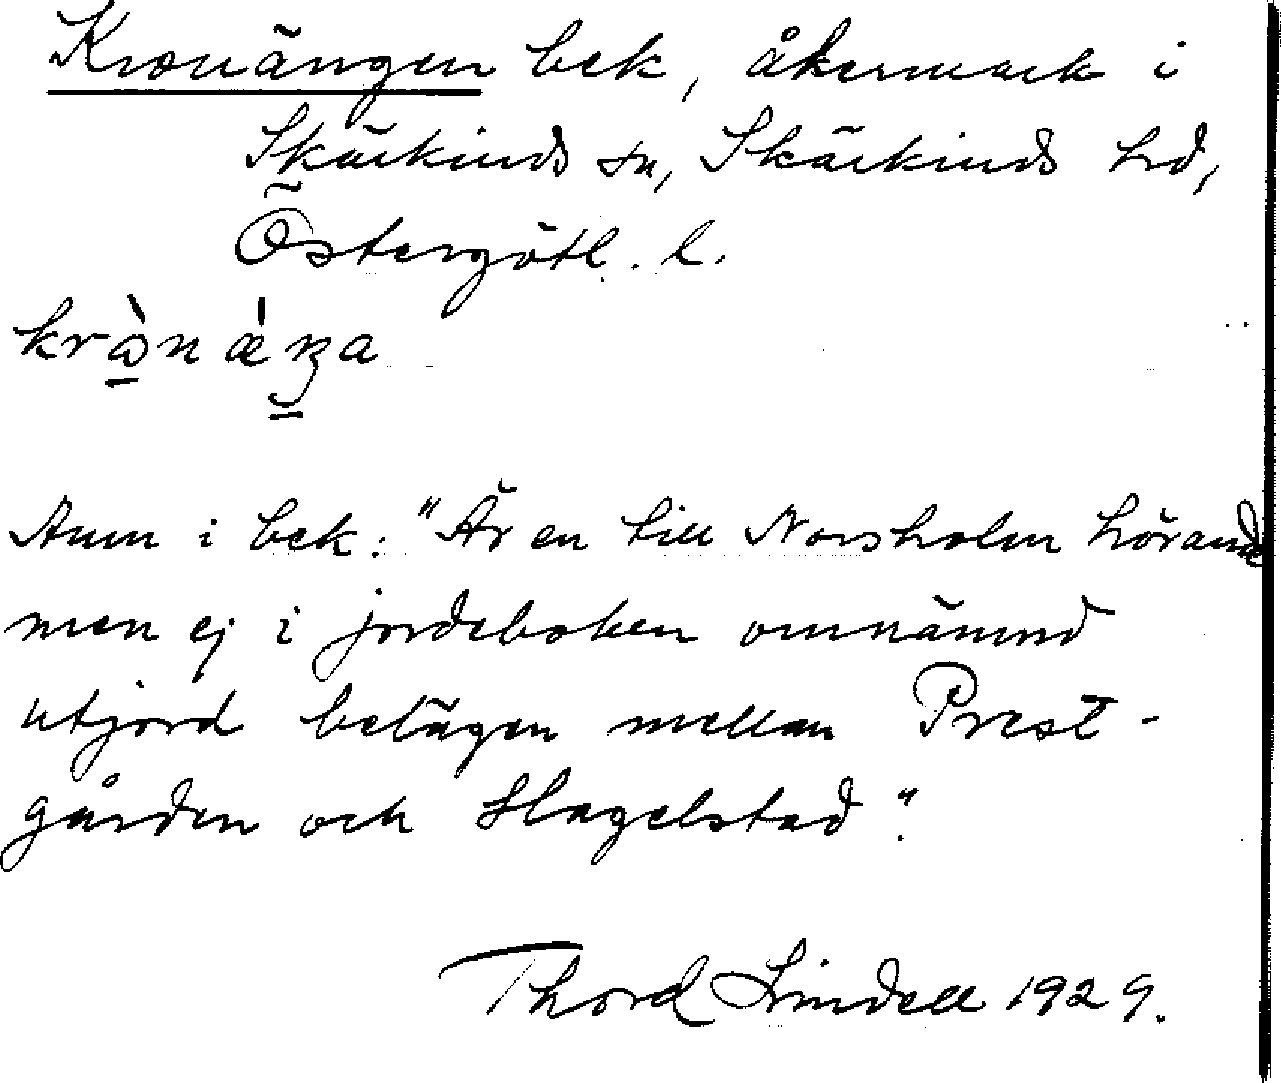 Kronängen bek, åkermark i
Skärkinds sn, Skärkinds hd,
Östergötl. l.
Anm i bek: "Är en till Norsholm hörande
men ej i jordeboken omnämnd
utjord belägen mellan Prest-
gården och Hagelstad".
Thord Lindell 1929.